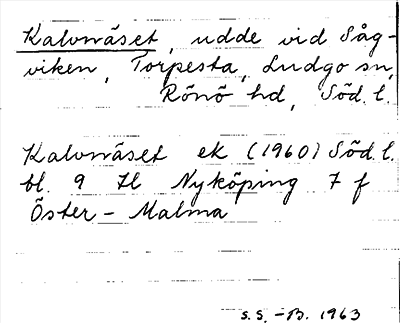 Kalvnäset, udde vid Såg-
viken, Torpesta, Ludgo sn,
Rönö hd, Söd. l.
Kalvnäset ek (1960) Söd. l.
bl. 9 Il Nyköping 7 f
Öster-Malma
S.S.-B. 1963